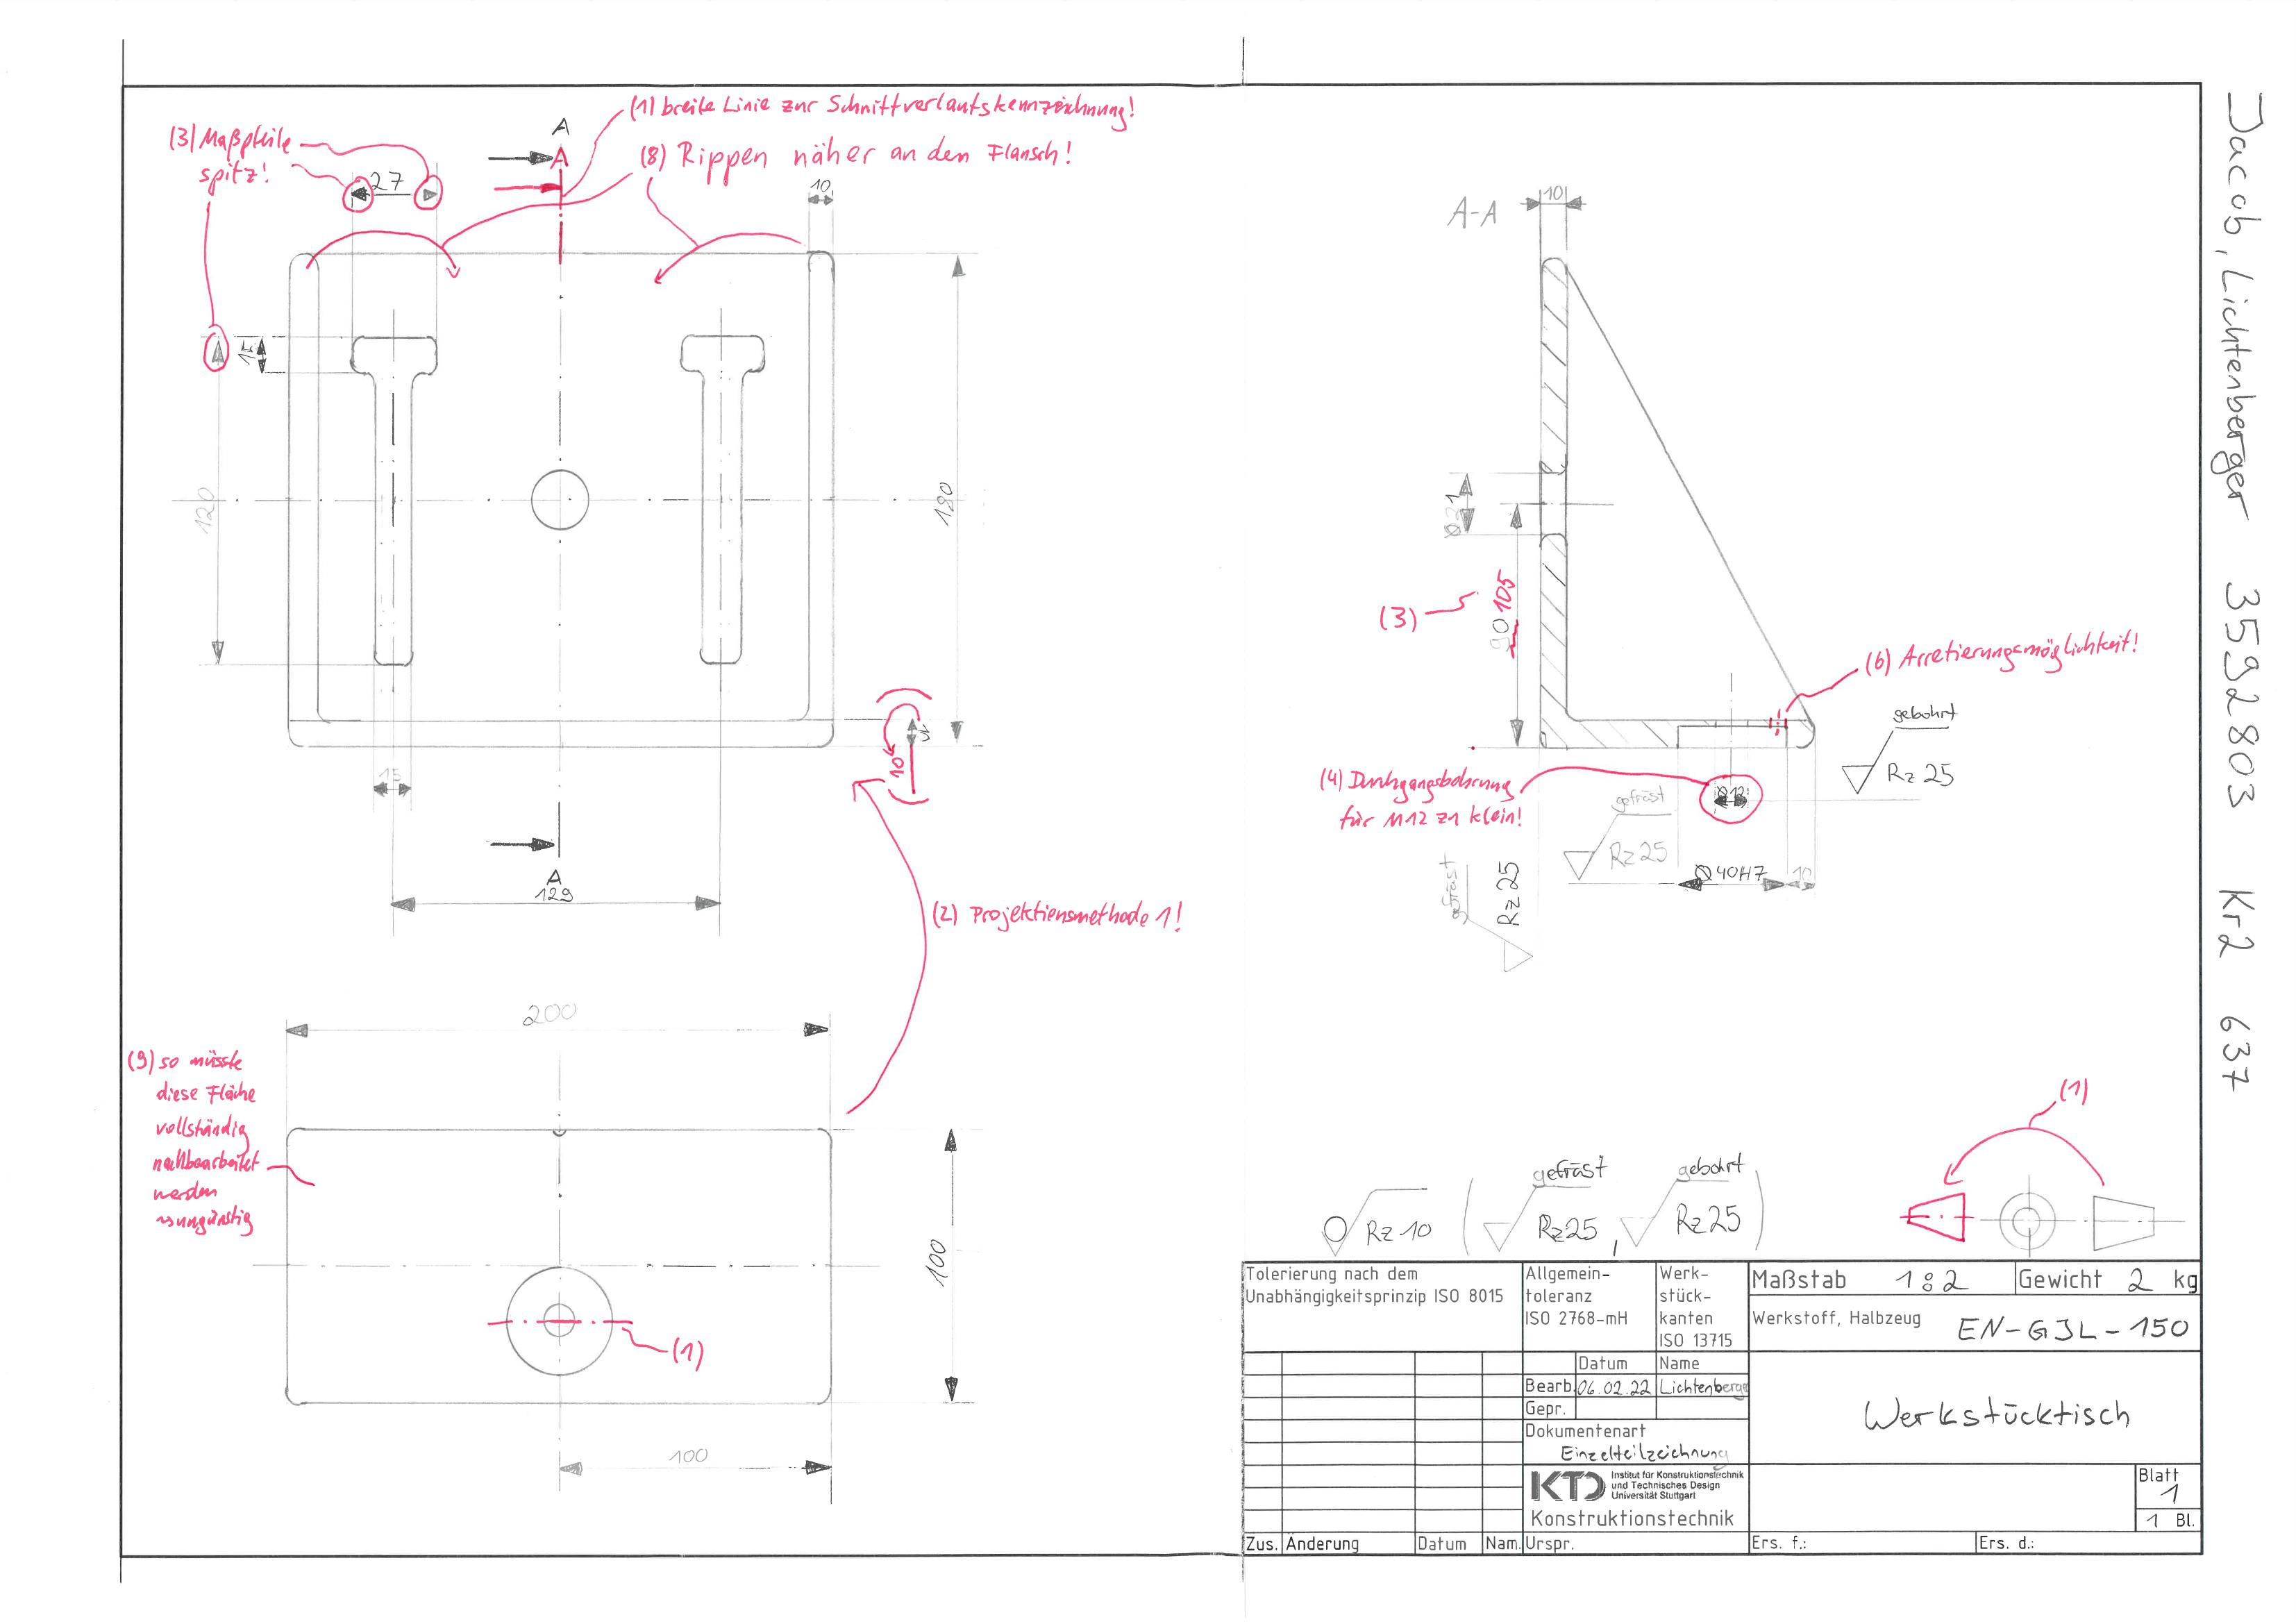 (1) breite Linie zur Schnittverlaufskennzeichnung!
(3) Maßpfeile
spitz!
A
A
(8) Rippen näher an den Flansch!
27
10
15
120
180
10
15
A
129
(2) Projektionsmethode 1!
200
(9) so müsste
diese Fläche
vollständig
nachbearbeitet
werden
ungünstig
100
(1)
100
A-A
10
Ø31
(3)
90 105
(6) Arretierungsmöglichkeit!
gebohrt
Rz 25
(4) Durchgangsbohrung
für M12 zu klein!
Ø12
gefräst
Rz 25
gefräst
Rz 25
Ø40H7
10
Jacob, Lichtenberger 3592803 Kr2 637
(1)
Rz 10
gefräst
Rz 25
,
gebohrt
Rz 25
Tolerierung nach dem
Unabhängigkeitsprinzip ISO 8015
Allgemein-
toleranz
ISO 2768-mH
Werk-
stück-
kanten
ISO 13715
Maßstab 1:2
Gewicht 2 kg
Werkstoff, Halbzeug EN-GJL-150
Datum Name
Bearb. 06.02.22 Lichtenberge
Gepr.
Dokumentenart
Einzelteilzeichnung
Werkstücktisch
KTD Institut für Konstruktionstechnik
und Technisches Design
Universität Stuttgart
Konstruktionstechnik
Blatt
1
1 Bl.
Zus. Änderung Datum Nam. Urspr. Ers. f.: Ers. d.: